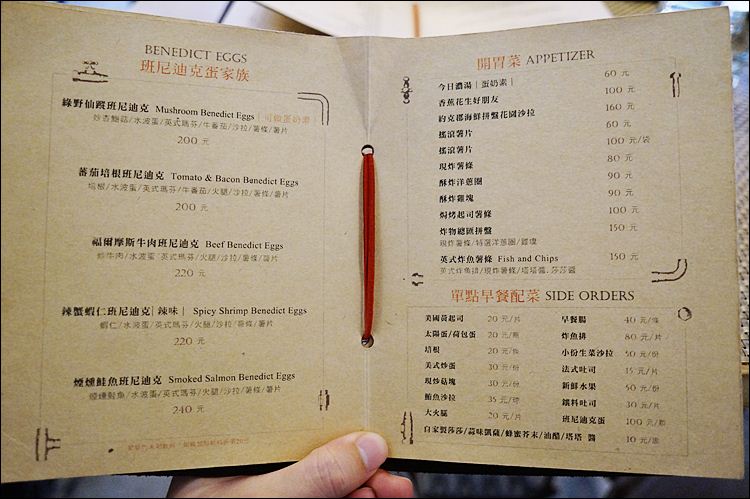 BENEDICT EGGS
班尼迪克蛋家族
綠野仙蹤班尼迪克 Mushroom Benedict Eggs | 可做蛋奶素 |
炒杏鮑菇/水波蛋/英式瑪芬/牛番茄/沙拉/薯條/薯片
200 元
蕃茄培根班尼迪克 Tomato & Bacon Benedict Eggs
培根/水波蛋/英式瑪芬/牛番茄/火腿/沙拉/薯條/薯片
200 元
福爾摩斯牛肉班尼迪克 Beef Benedict Eggs
炒牛肉/水波蛋/英式瑪芬/火腿/沙拉/薯條/薯片
220 元
辣蟹蝦仁班尼迪克| 辣味 | Spicy Shrimp Benedict Eggs
蝦仁/水波蛋/英式瑪芬/火腿/沙拉/薯條/薯片
220 元
煙燻鮭魚班尼迪克 Smoked Salmon Benedict Eggs
煙燻鮭魚/水波蛋/英式瑪芬/火腿/沙拉/薯條/薯片
240 元
開胃菜 APPETIZER
今日濃湯 | 蛋奶素 | 60 元
香蕉花生好朋友 100 元
約克郡海鮮拼盤花園沙拉 160 元
搖滾薯片 60 元
搖滾薯片 100 元/袋
現炸薯條 80 元
酥炸洋蔥圈 90 元
酥炸雞塊 90 元
焗烤起司薯條 100 元
炸物總匯拼盤 150 元
現炸薯條/特選洋蔥圈/雞塊
英式炸魚薯條 Fish and Chips 150 元
英式炸魚排/現炸薯條/塔塔醬、莎莎醬
單點早餐配菜 SIDE ORDERS
美國黃起司 20 元/片 早餐腸 40 元/條
太陽蛋/荷包蛋 20 元/顆 炸魚排 80 元/片
培根 20 元/條 小份生菜沙拉 50 元/份
美式炒蛋 30 元/份 法式吐司 15 元/片
現炒菇塊 30 元/份 新鮮水果 50 元/份
鮪魚沙拉 35 元/球 鐵料吐司 30 元/片
大火腿 20 元/片 班尼迪克蛋 100 元/顆
自家製莎莎/蒜味凱薩/蜂蜜芥末/油醋/塔塔 醬 10 元/盅